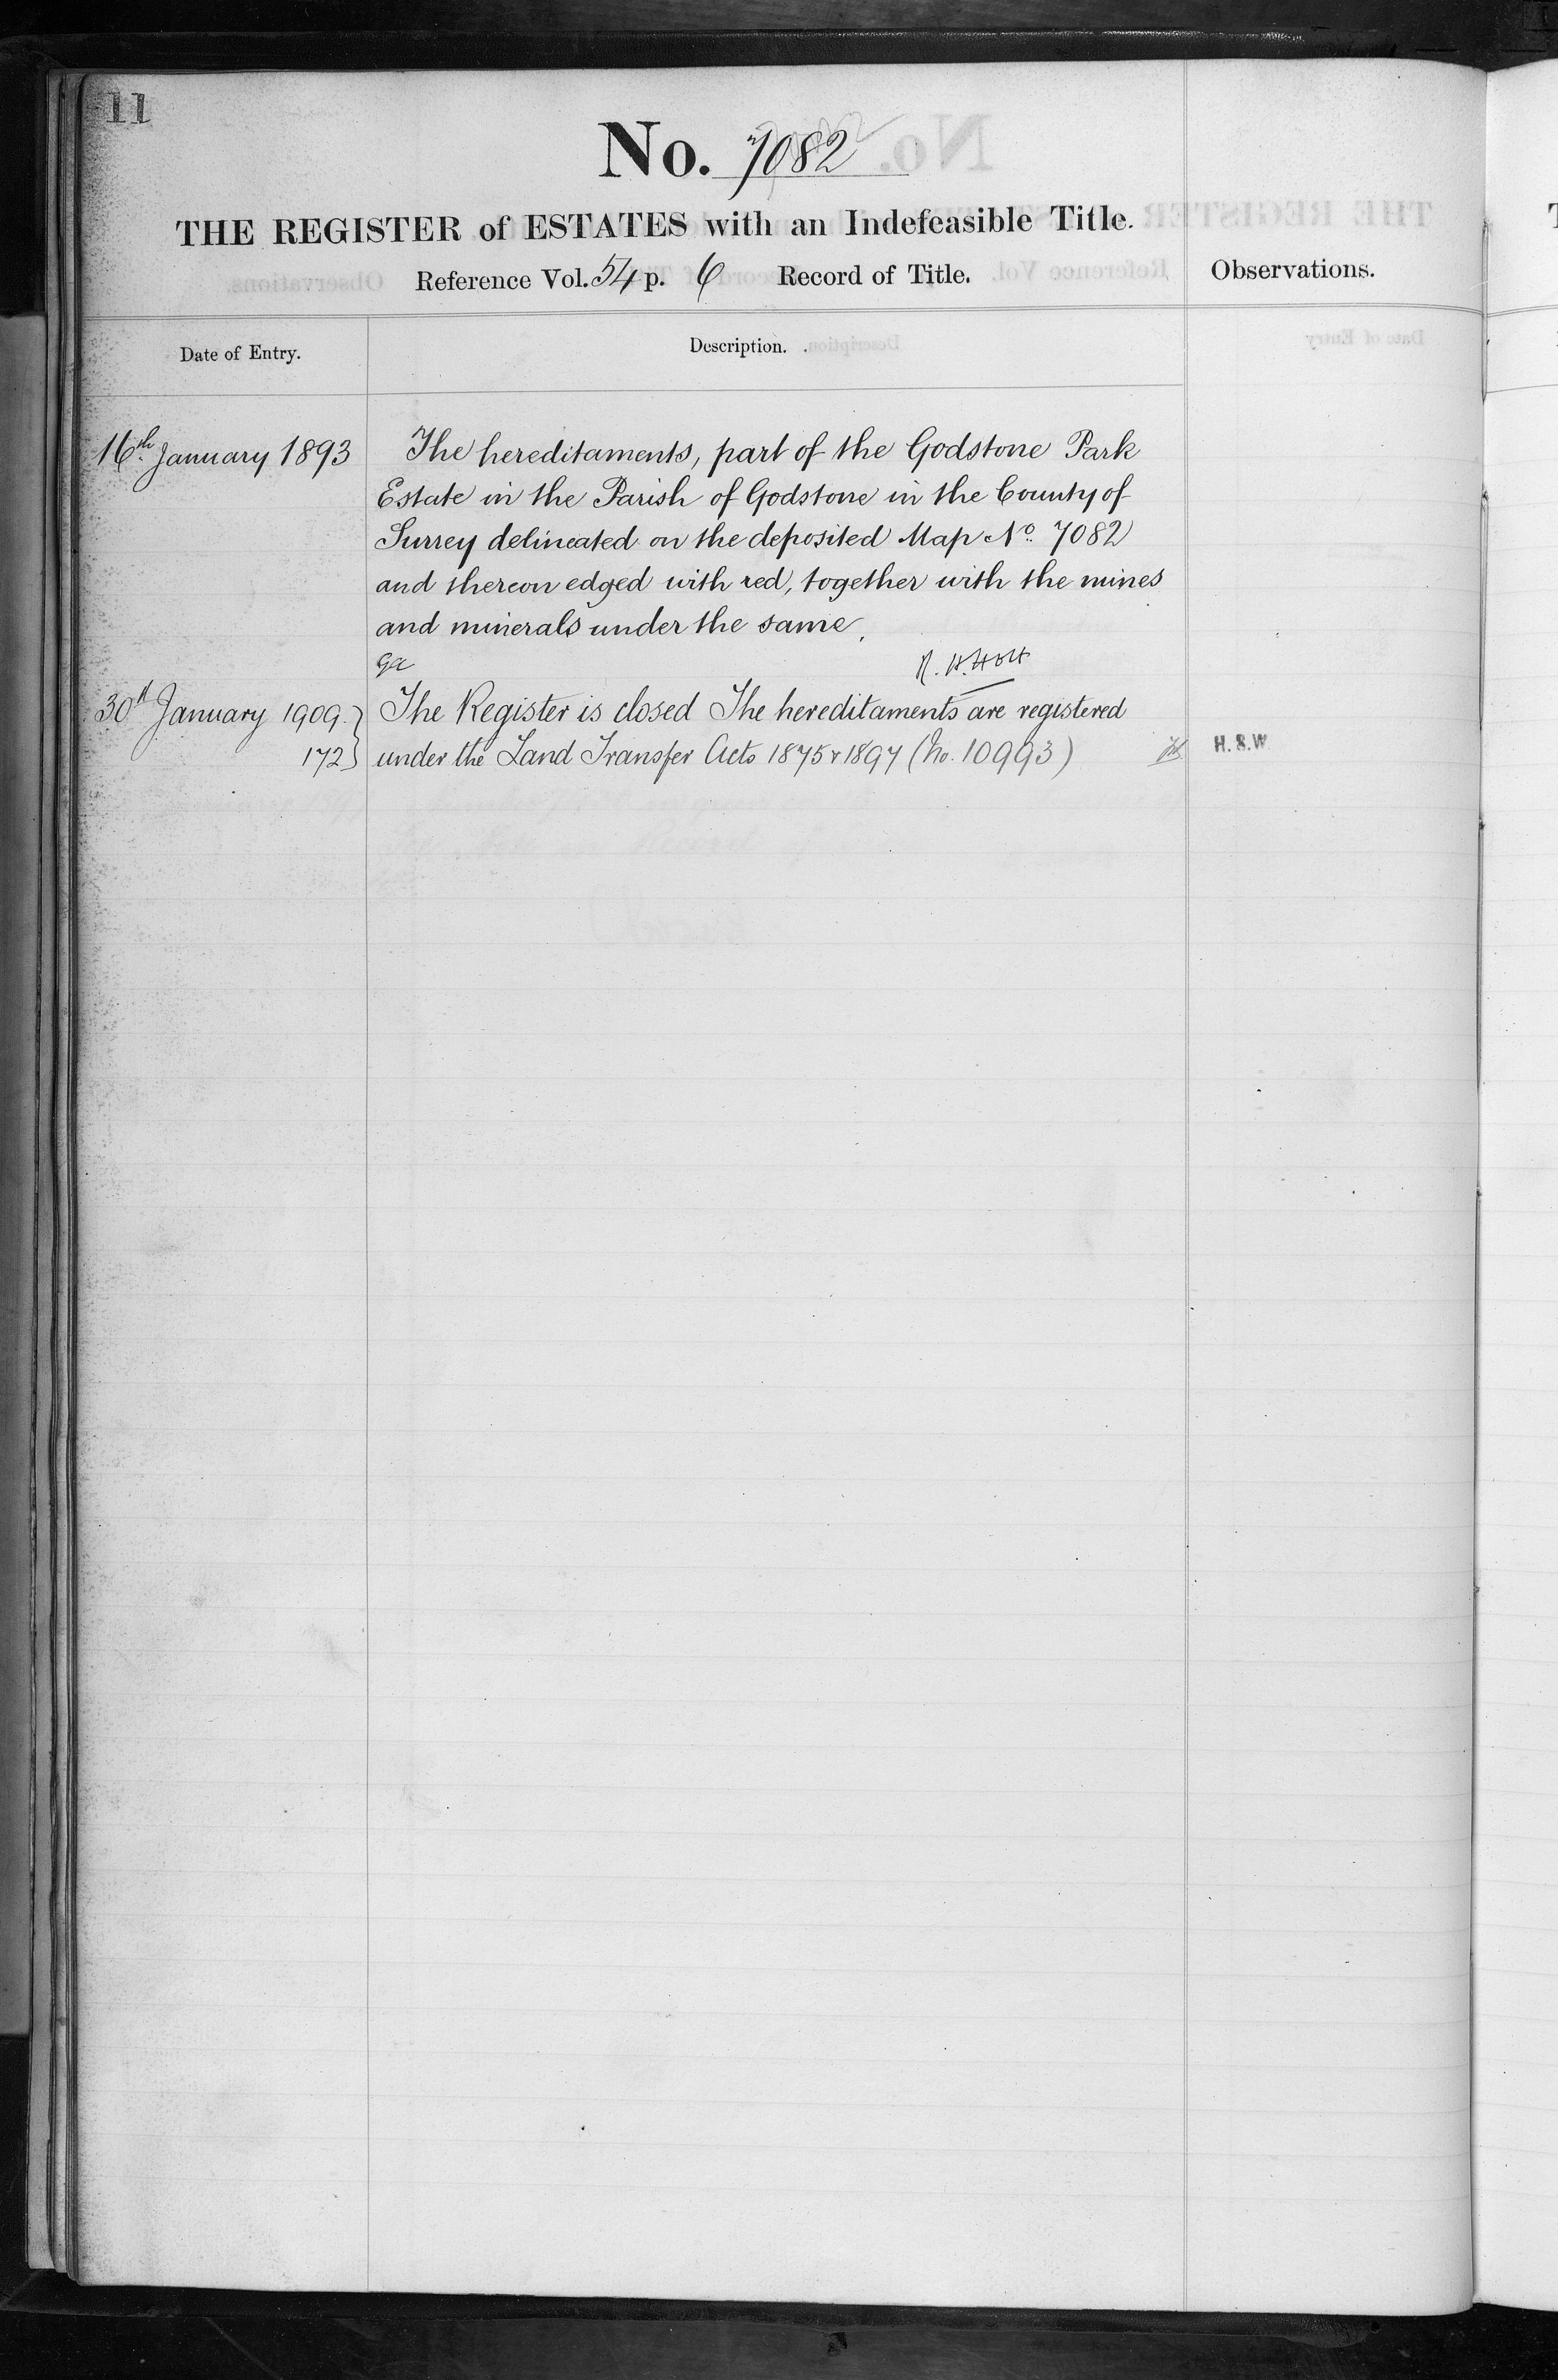 11
No. 7082
THE REGISTER of ESTATES with an Indefeasible Title.
Reference Vol. 54 p. 6 Record of Title.
Observations.
Date of Entry.
Description.
16th January 1893
The hereditaments, part of the Godstone Park
Estate in the Parish of Godstone in the County of
Surrey delineated on the deposited Map No. 7082
and thereon edged with red, together with the mines
and minerals under the same.
R. H. Holt
30th January 1909. The Register is closed The hereditaments are registered
172 under the Land Transfer Acts 1875 & 1897 (No. 10993)
H.S.W